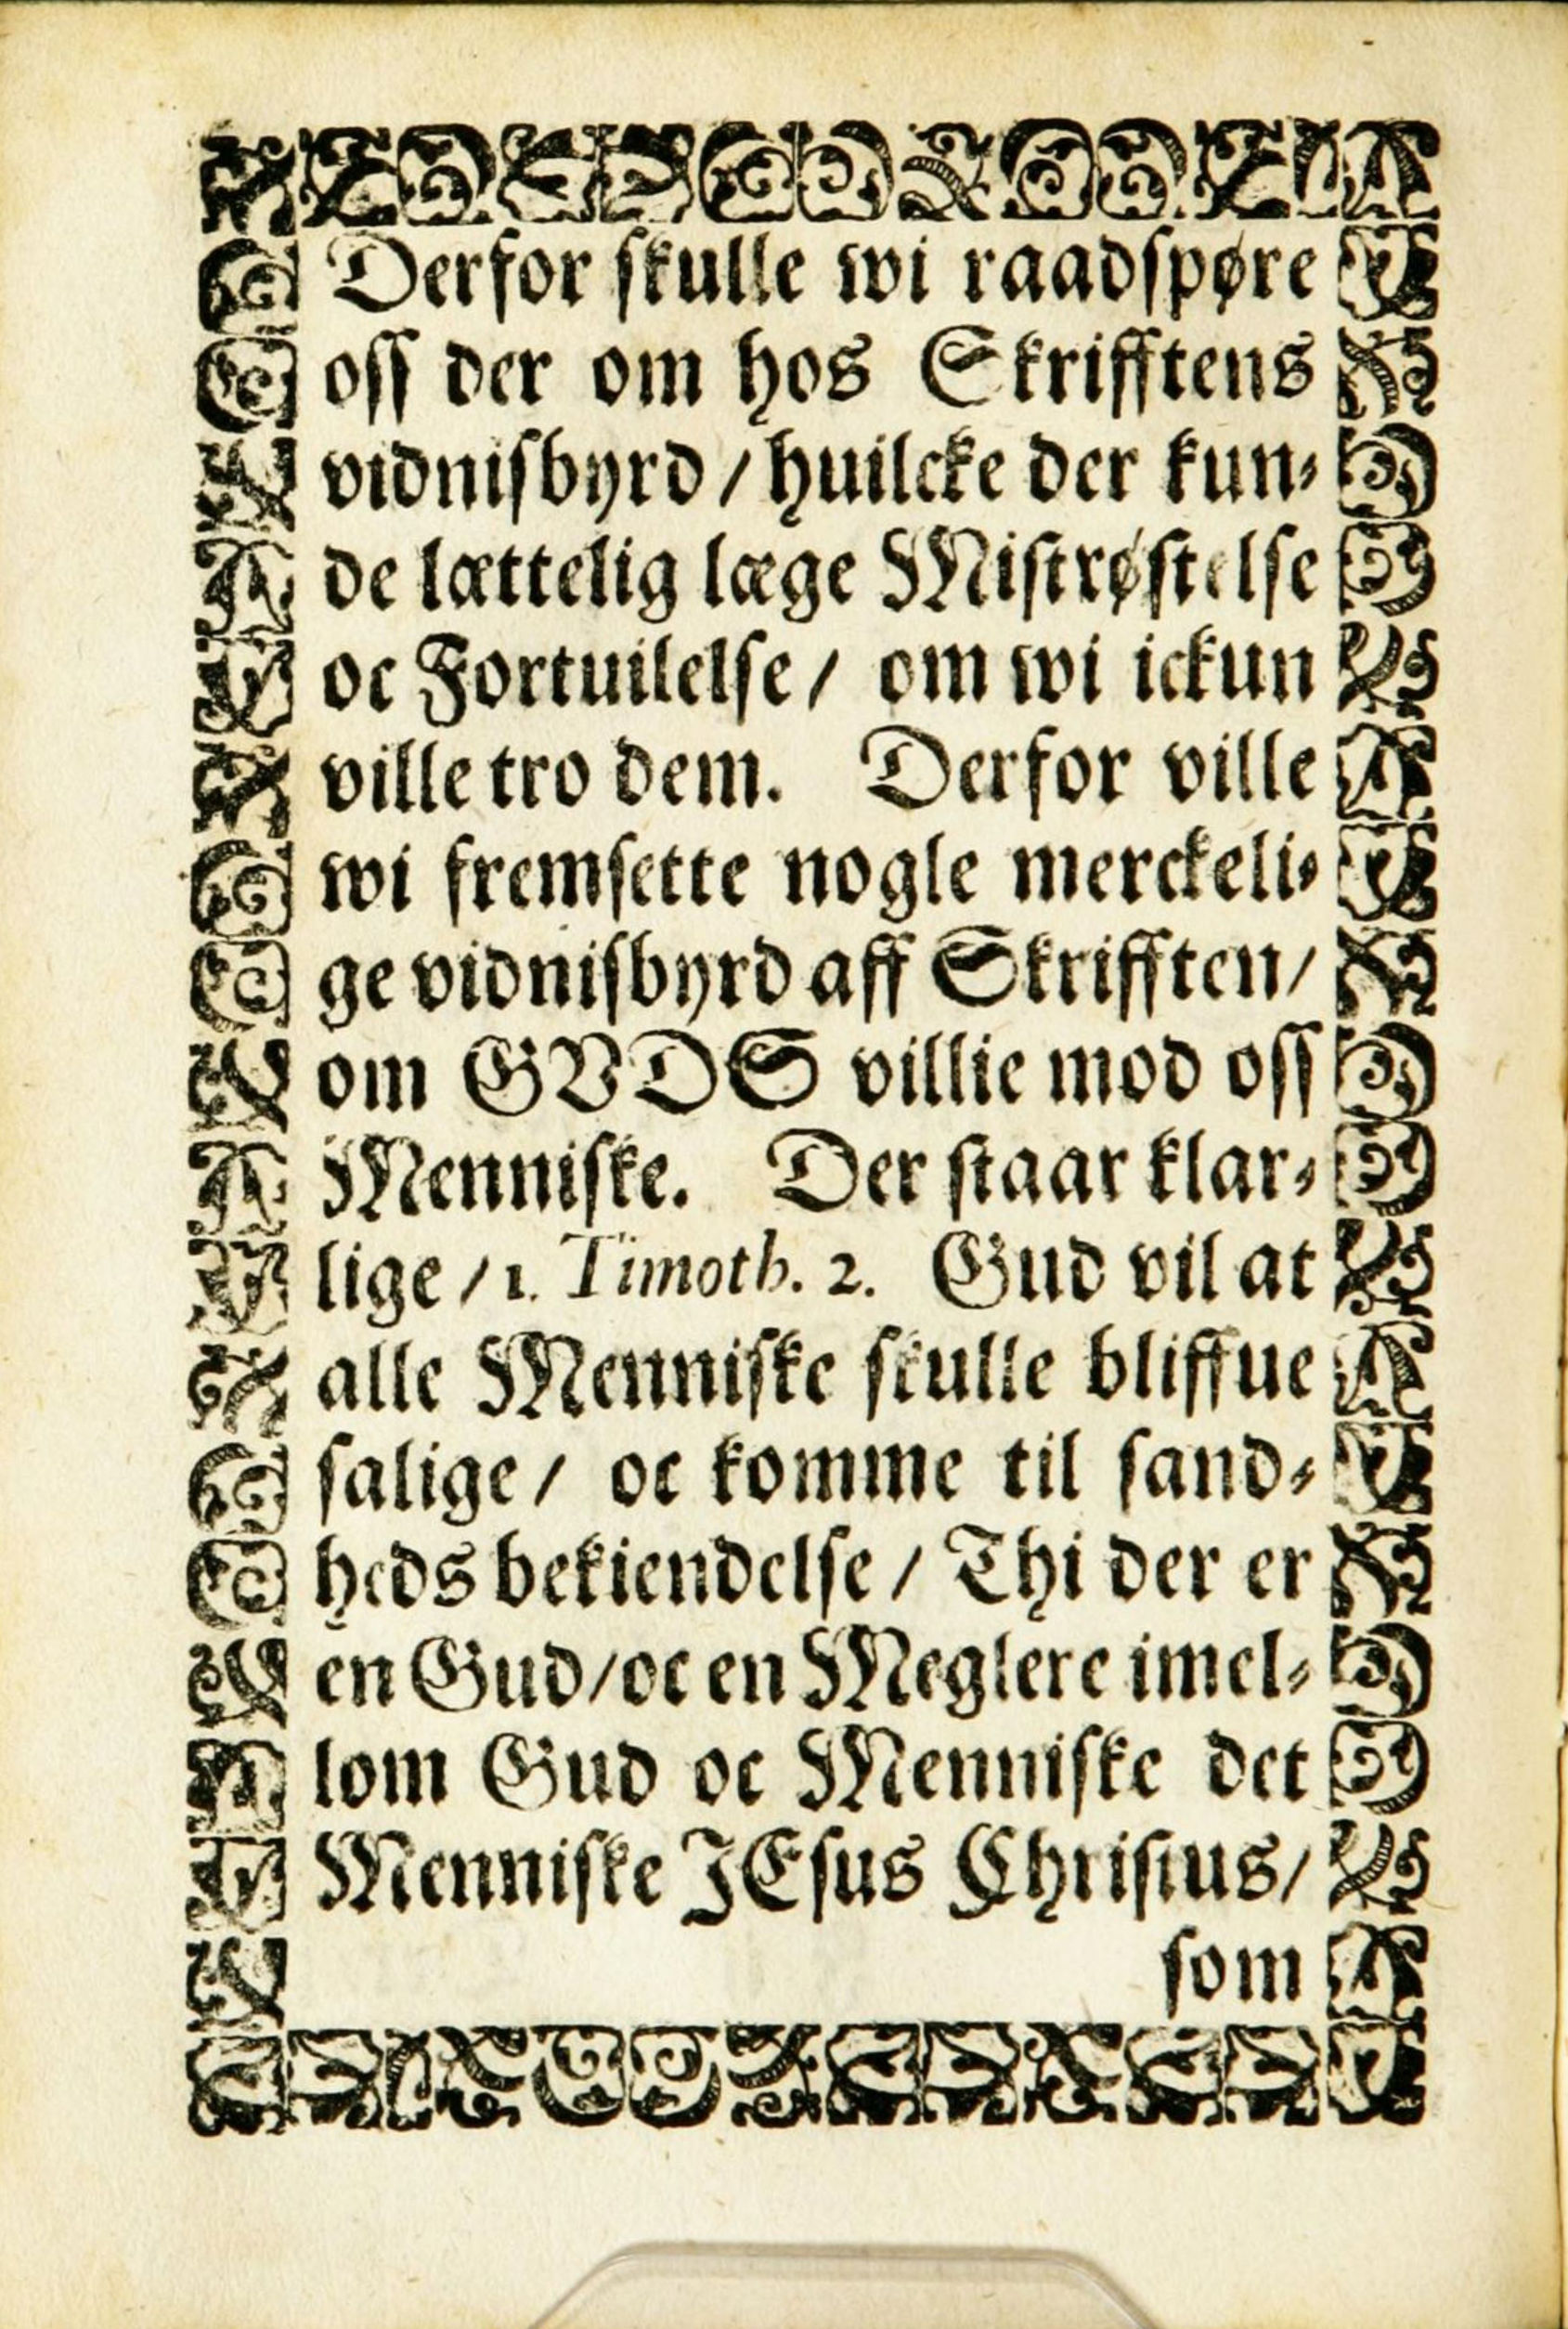 Derfor skulle wi raadspøre
oss der om hos Skrifftens
vidnisbyrd / huilcke der kun⸗
de lættelig læge Mistrøstelse
oc Fortuilelse / om wi ickun
ville tro dem. Derfor ville
wi fremsette nogle merckeli⸗
ge vidnisbyrd aff Skrifften /
om GVDS villie mod oss
Menniske. Der staar klar⸗
lige / 1. Timoth. 2. Gud vil at
alle Menniske skulle bliffue
salige / oc komme til sand⸗
heds bekiendelse / Thi der er
en Gud / oc en Meglere imel⸗
lom Gud oc Menniske det
Menniske JEsus Christus /
som